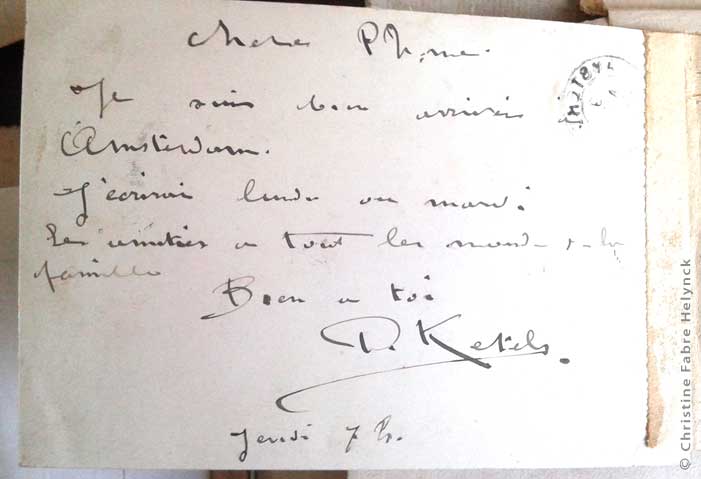 Chère Ph,ne.
Je suis bien arrivée à
Amsterdam.
J'écrirai lundi ou mardi.
Les amitiés a tout les monde de la
famille
Bien a toi
D. Ketels.
Jeudi 7 h.
© Christine Fabre Helynck